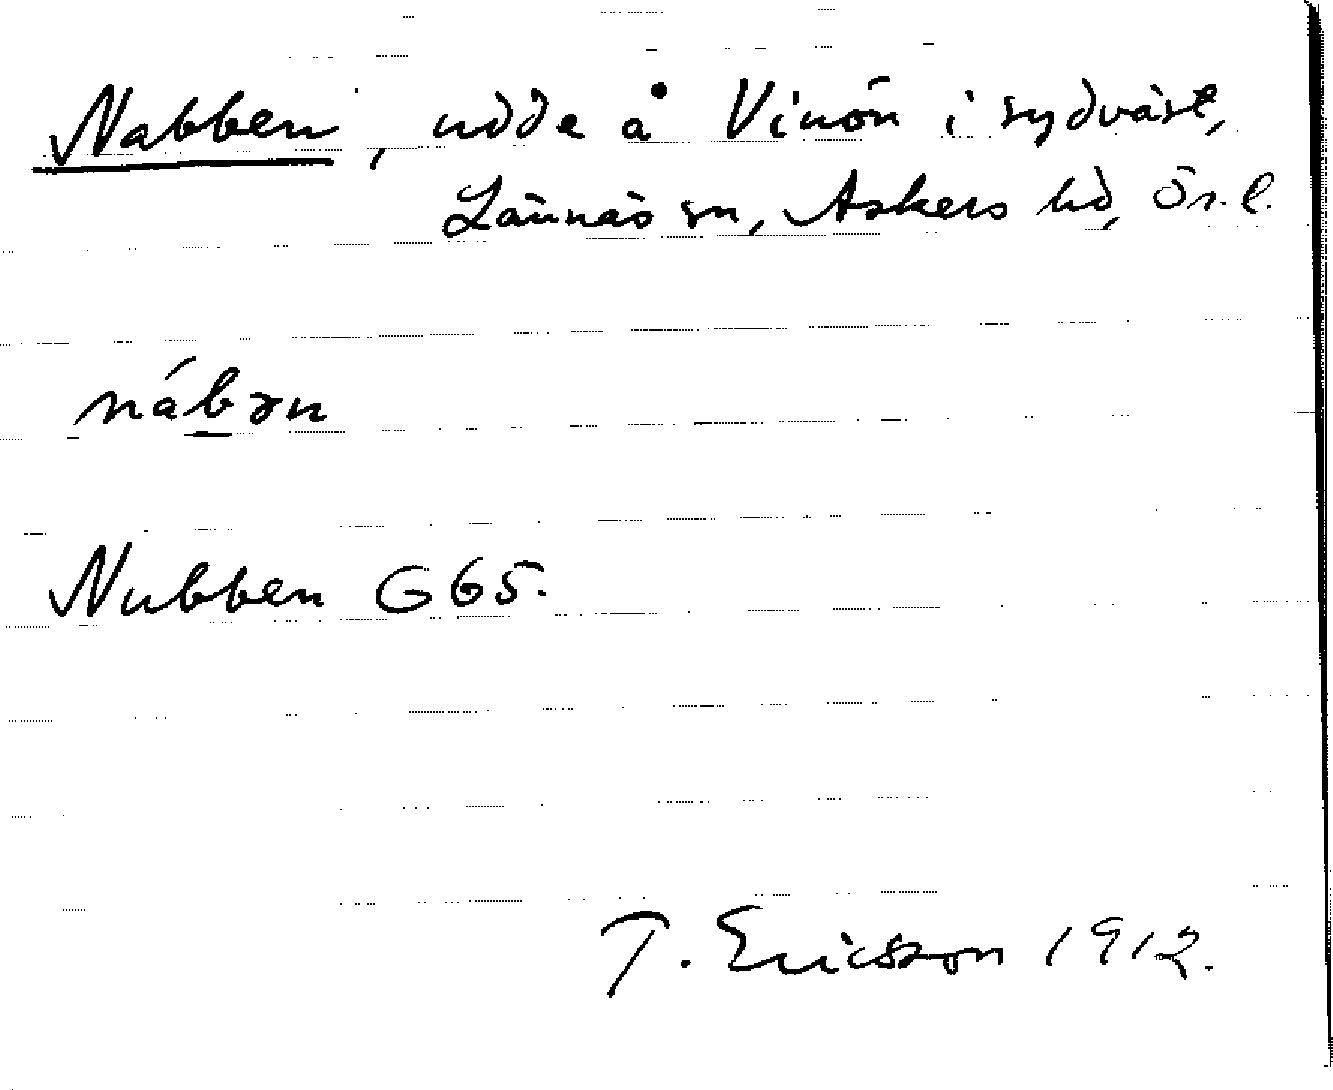 Nabben, udde å Vinön i sydväst,
Lännäs sn, Askers hd, Ör. l.
náb̲ən
Nubben G65.
T. Ericsson 1912.